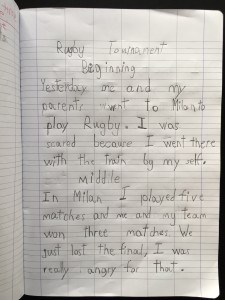 Rugby Tournament
Beginning
Yesterday me and my
parents went to Milan to
play Rugby. I was
scared because I went there
with the train by my self.
middle
In Milan I played five
matches and me and my team
won three matches. We
just lost the final, I was
really angry for that.